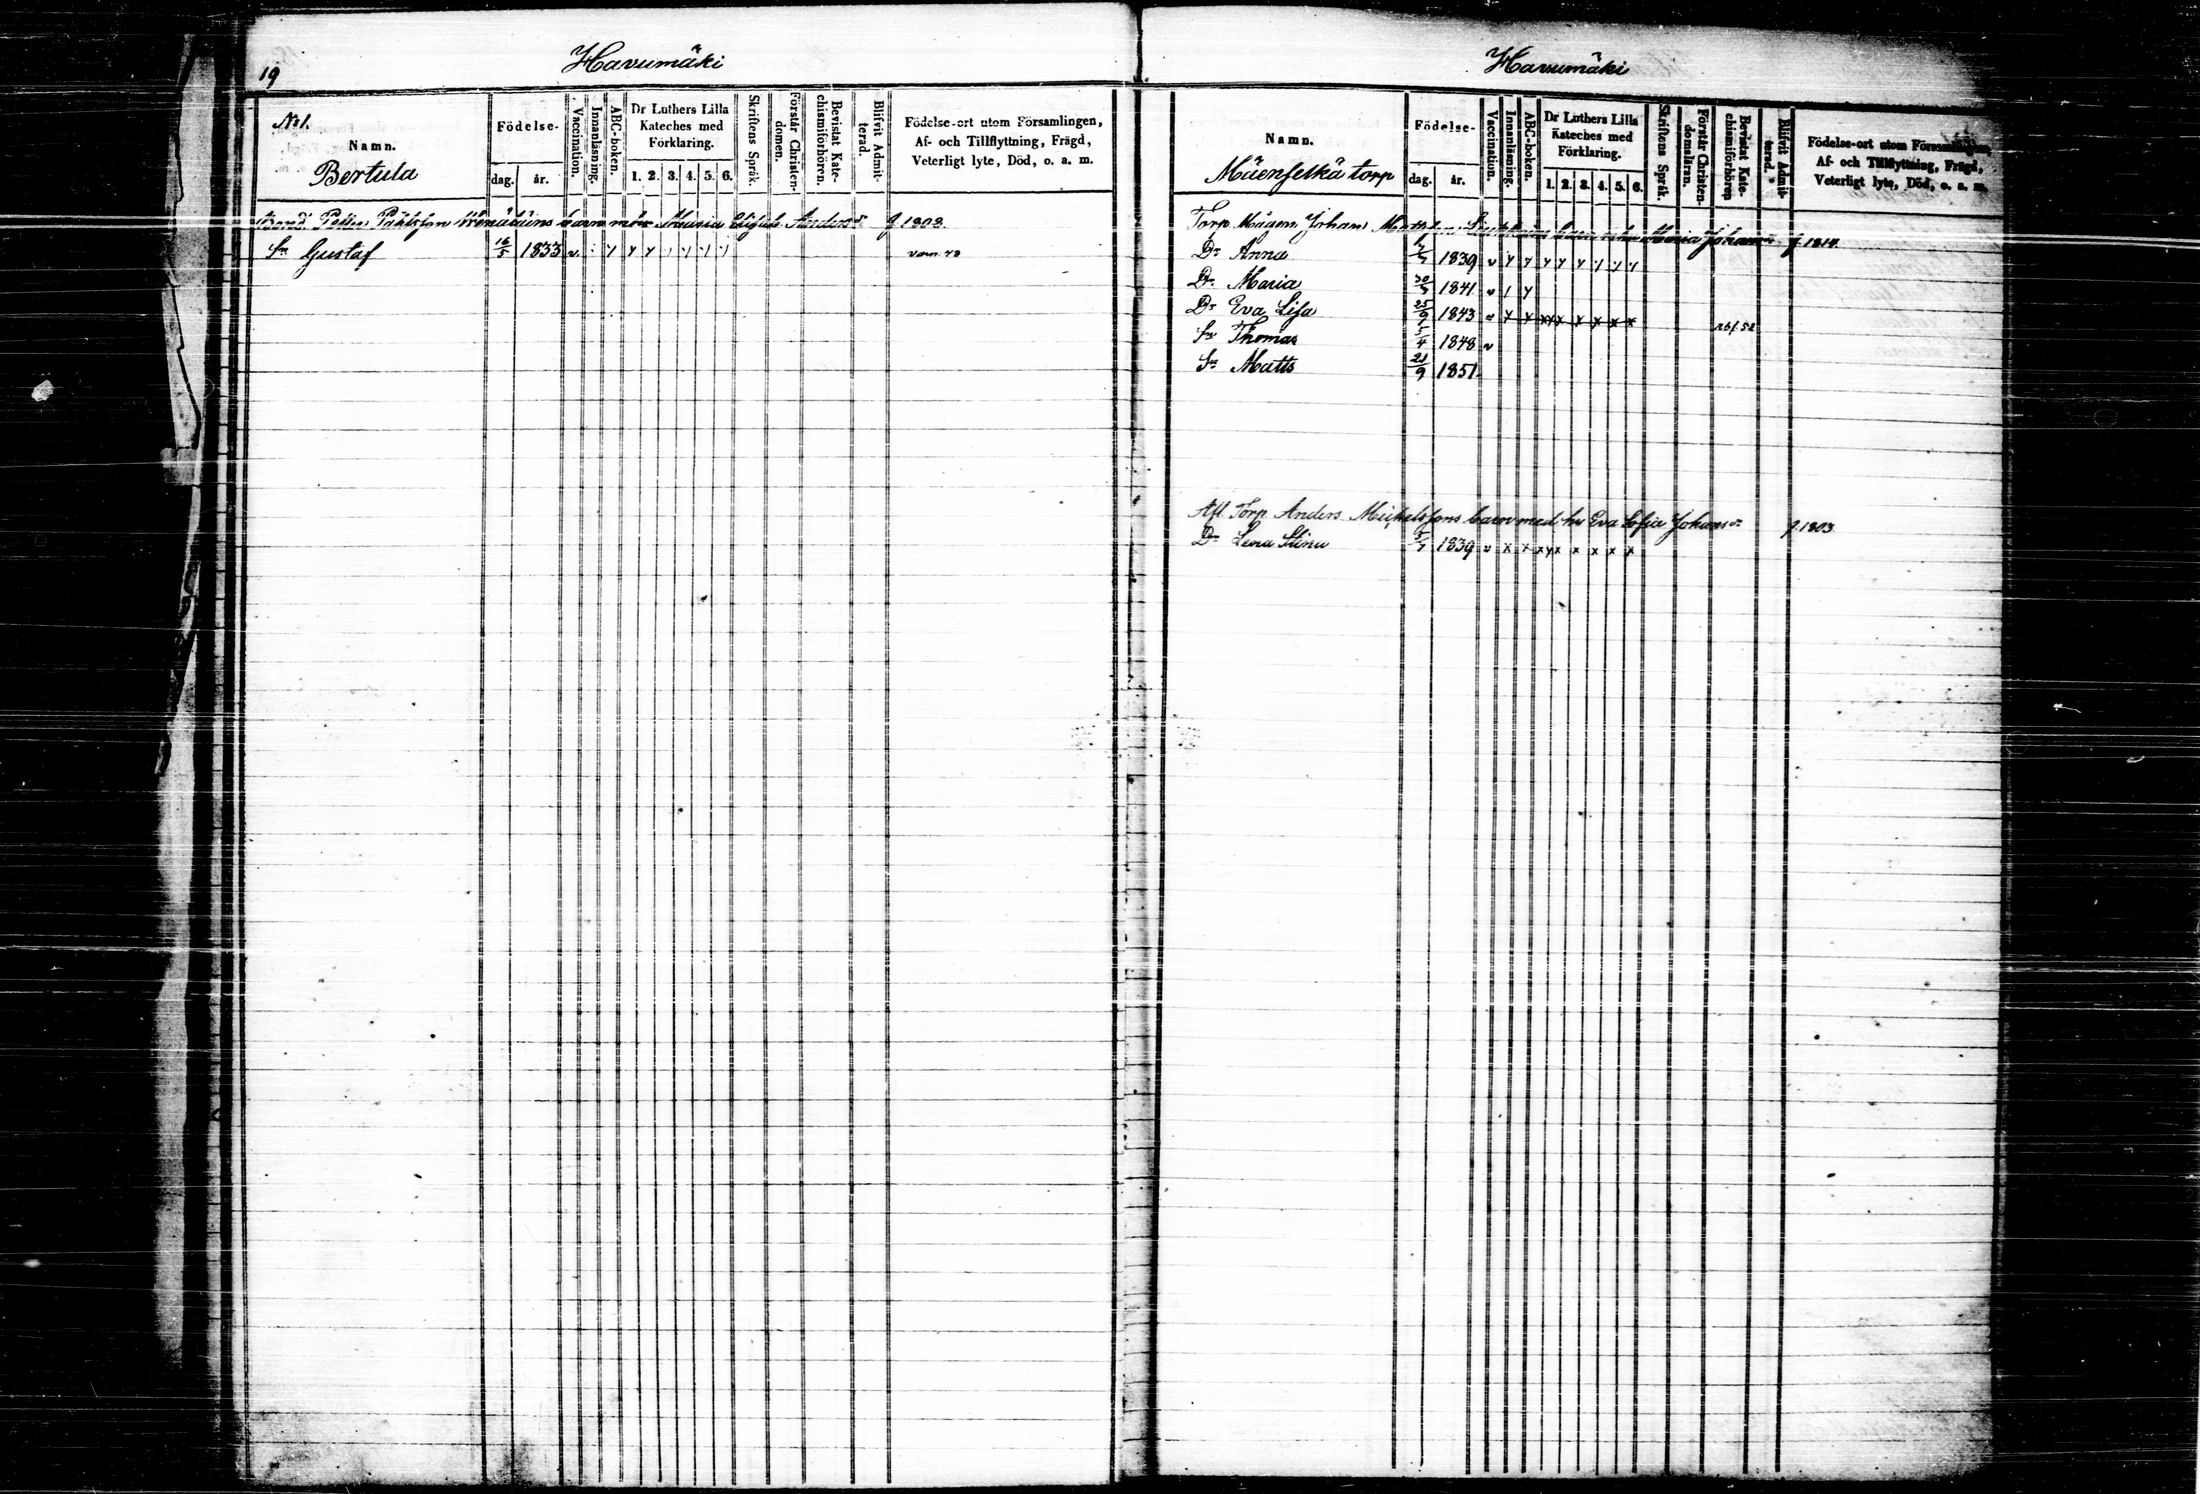 19
Havumäki
No 1.
Namn.
Bertula
Födelse-
dag. år.
Vaccination.
Innanläsning.
ABC-boken.
Dr Luthers Lilla
Kateches med
Förklaring.
1. 2. 3. 4. 5. 6.
Skriftens Språk.
Förstår Christen-
domen.
Bevistat Kate-
chismiförhören.
Blifvit Admit-
terad.
Födelse-ort utom Församlingen,
Af- och Tillflyttning, Frägd,
Veterligt lyte, Död, o. a. m.
Petter Påhlsson barn Maria Anders dr f. 1803.
Sn Gustaf 16/5 1833 v.
Havumäki
Namn.
Mäenselkä torp
Födelse-
dag. år.
Vaccination.
Innanläsning.
ABC-boken.
Dr Luthers Lilla
Kateches med
Förklaring.
1. 2. 3. 4. 5. 6.
Skriftens Språk.
Förstår Christen-
domsläran.
Bevistat Kate-
chismiförhören
Blifvit Admit-
terad.
Födelse-ort utom Församlingen,
Af- och Tillflyttning, Frägd,
Veterligt lyte, Död, o. a. m.
Torp. Mågen Johan barn Maria Johans dr f. 1814.
Dr Anna 1839 v
Dr Maria 30/3 1841 v
Dr Eva Lisa 25/9 1843 v x x x x x x x x
Sn Thomas 1848 v
Sn Matts 21/9 1851
Afl. Torp. Anders Michelssons barn med hu Eva Sofia Johans dr f. 1803
Dr Lena Stina 5/7 1839 v x x x x x x x x